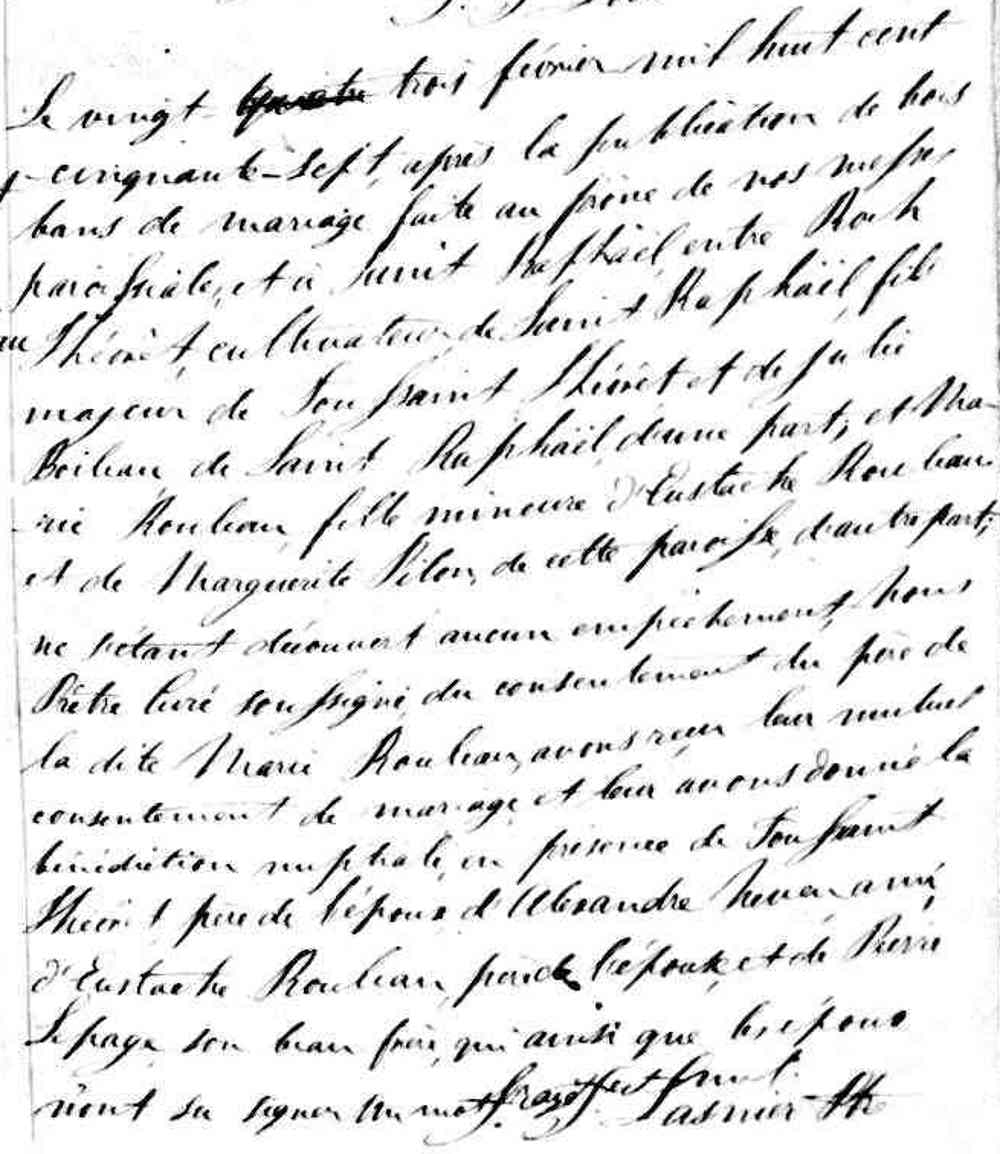 Le vingt quatre trois février mil huit cent
cinquante-sept, après la publication de trois
bans de mariage faite au prône de nos messes
paroissiales, et à Saint Raphaël, entre Roch
Théorêt, cultivateur de Saint Raphaël, fils
majeur de Toussaint Théorêt et de Julie
Boileau de Saint Raphaël, d'une part; et Ma-
rie Rouleau, fille mineure d'Eustache Rouleau
et de Marguerite Pilon, de cette paroisse, d'autre part;
ne s'étant découvert aucun empêchement, Nous
Prêtre Curé soussigné, du consentement du père de
la dite Marie Rouleau, avons reçu leur mutuel
consentement de mariage et leur avons donné la
bénédiction nuptiale, en présence de Toussaint
Théorêt père de l'époux, d'Alexandre ami,
d'Eustache Rouleau, père de l'épouse, et de Pierre
Lepage son beau frère, qui ainsi que les époux
n'ont su signer. Un mot rayé est nul. Lasnier Ptre